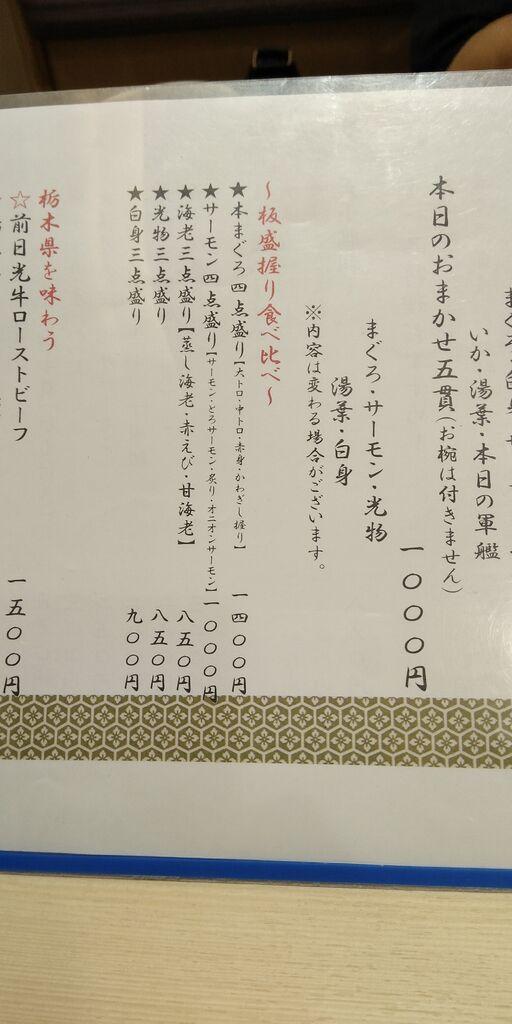 いか・湯葉・本日の軍艦
本日のおまかせ五貫(お椀は付きません)
一〇〇〇円
まぐろ・サーモン・光物
湯葉・白身
※内容は変わる場合がございます。
~板盛握り食べ比べ~
★本まぐろ四点盛り【大トロ・中トロ・赤身・かわぎし握り】 一四〇〇円
★サーモン四点盛り【サーモン・とろサーモン・炙り・オニオンサーモン】 一〇〇〇円
★海老三点盛り【蒸し海老・赤えび・甘海老】 八五〇円
★光物三点盛り 八五〇円
★白身三点盛り 九〇〇円
栃木県を味わう
☆前日光牛ローストビーフ 一五〇〇円